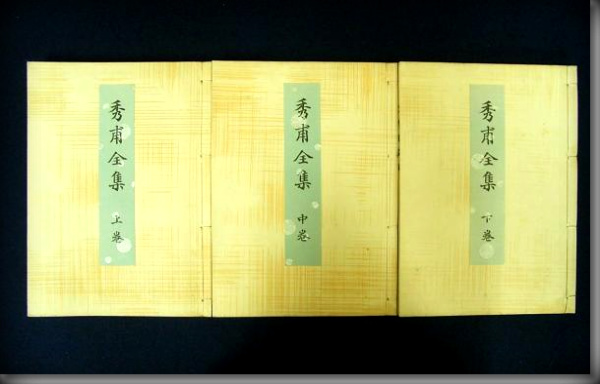 秀甫全集 上巻
秀甫全集 中巻
秀甫全集 下巻